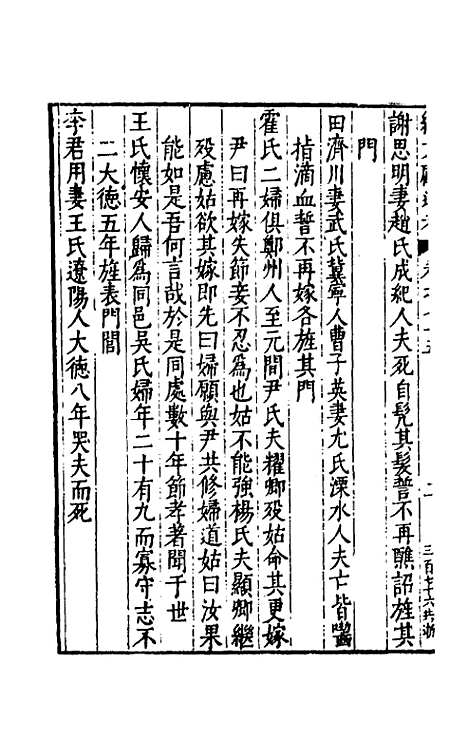 謝思明妻趙氏成紀人夫死自髠其髮誓不再醮詔旌其
門
田濟川妻武氏冀寧人曹子英妻尤氏溧水人夫亡皆齧
指滴血誓不再嫁各旌其門
霍氏二婦俱鄭州人至元間尹氏夫耀卿殁姑命其更嫁
尹曰再嫁失節妾不忍為也姑不能強楊氏夫顯卿繼
殁慮姑欲其嫁即先曰婦願與尹共修婦道姑曰汝果
能如是吾何言哉於是同處數十年節孝著聞于世
王氏懷安人歸為同邑吳氏婦年二十有九而寡守志不
二大徳五年旌表門閭
李君用妻王氏遼陽人大徳八年哭夫而死
三百七十六